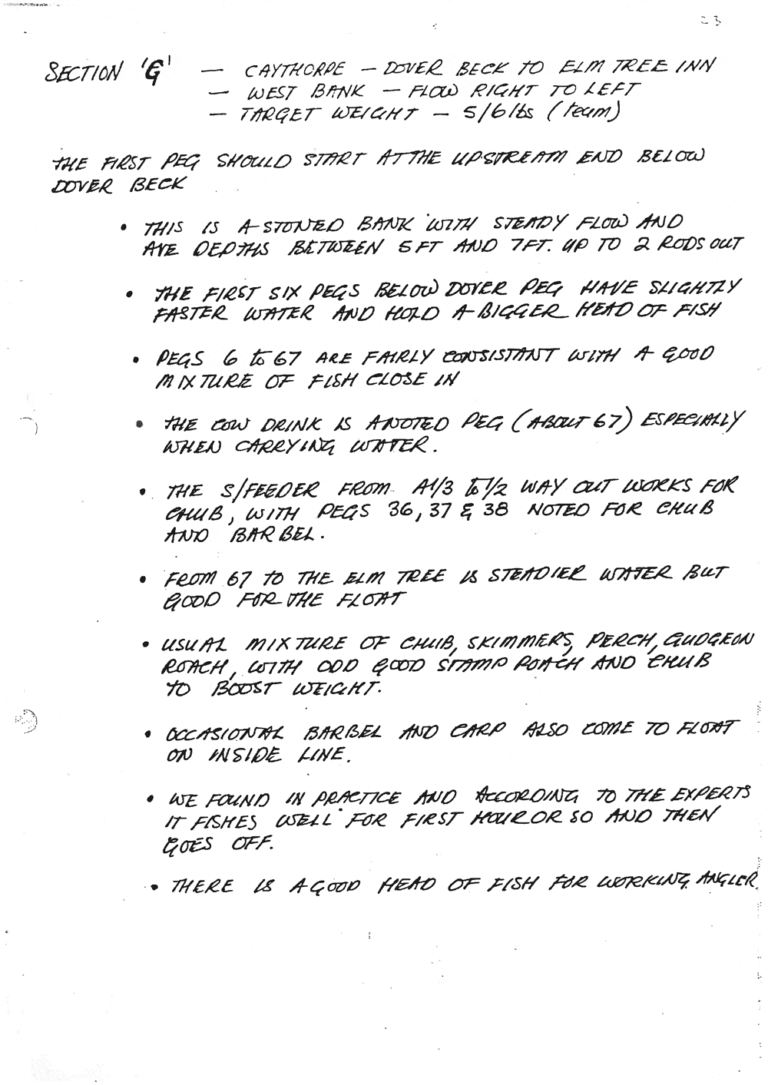 23
SECTION 'G' — CAYTHORPE — DOVER BECK TO ELM TREE INN
— WEST BANK — FLOW RIGHT TO LEFT
— TARGET WEIGHT — 5/6 lbs (team)
THE FIRST PEG SHOULD START AT THE UPSTREAM END BELOW
DOVER BECK
• THIS IS A STONED BANK WITH STEADY FLOW AND
AVE DEPTHS BETWEEN 5FT AND 7FT. UP TO 2 RODS OUT
• THE FIRST SIX PEGS BELOW DOVER PEG HAVE SLIGHTLY
FASTER WATER AND HOLD A BIGGER HEAD OF FISH
• PEGS 6 to 67 ARE FAIRLY CONSISTANT WITH A GOOD
MIXTURE OF FISH CLOSE IN
• THE COW DRINK IS A NOTED PEG (ABOUT 67) ESPECIALLY
WHEN CARRYING WATER.
• THE S/FEEDER FROM A 1/3 to 1/2 WAY OUT WORKS FOR
CHUB, WITH PEGS 36, 37 & 38 NOTED FOR CHUB
AND BARBEL.
• FROM 67 TO THE ELM TREE IS STEADIER WATER BUT
GOOD FOR THE FLOAT
• USUAL MIXTURE OF CHUB, SKIMMERS, PERCH, GUDGEON
ROACH, WITH ODD GOOD STAMP ROACH AND CHUB
TO BOOST WEIGHT.
• OCCASIONAL BARBEL AND CARP ALSO COME TO FLOAT
ON INSIDE LINE.
• WE FOUND IN PRACTICE AND ACCORDING TO THE EXPERTS
IT FISHES WELL FOR FIRST HOUR OR SO AND THEN
GOES OFF.
• THERE IS A GOOD HEAD OF FISH FOR WORKING ANGLER.